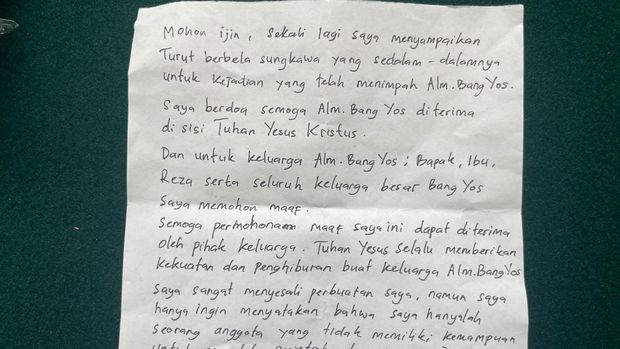 Mohon ijin, sekali lagi saya menyampaikan
Turut berbela sungkawa yang sedalam-dalamnya
untuk kejadian yang telah menimpah Alm. Bang Yos.
Saya berdoa semoga Alm. Bang Yos diterima
di sisi Tuhan Yesus Kristus.
Dan untuk keluarga Alm. Bang Yos ; Bapak, Ibu,
Reza serta seluruh keluarga besar Bang Yos
Saya memohon maaf.
Semoga permohonan maaf saya ini dapat diterima
oleh pihak keluarga. Tuhan Yesus selalu memberikan
kekuatan dan penghiburan buat keluarga Alm. Bang Yos
saya sangat menyesali perbuatan saya, namun saya
hanya ingin menyatakan bahwa saya hanyalah
seorang anggota yang tidak memiliki kemampuan